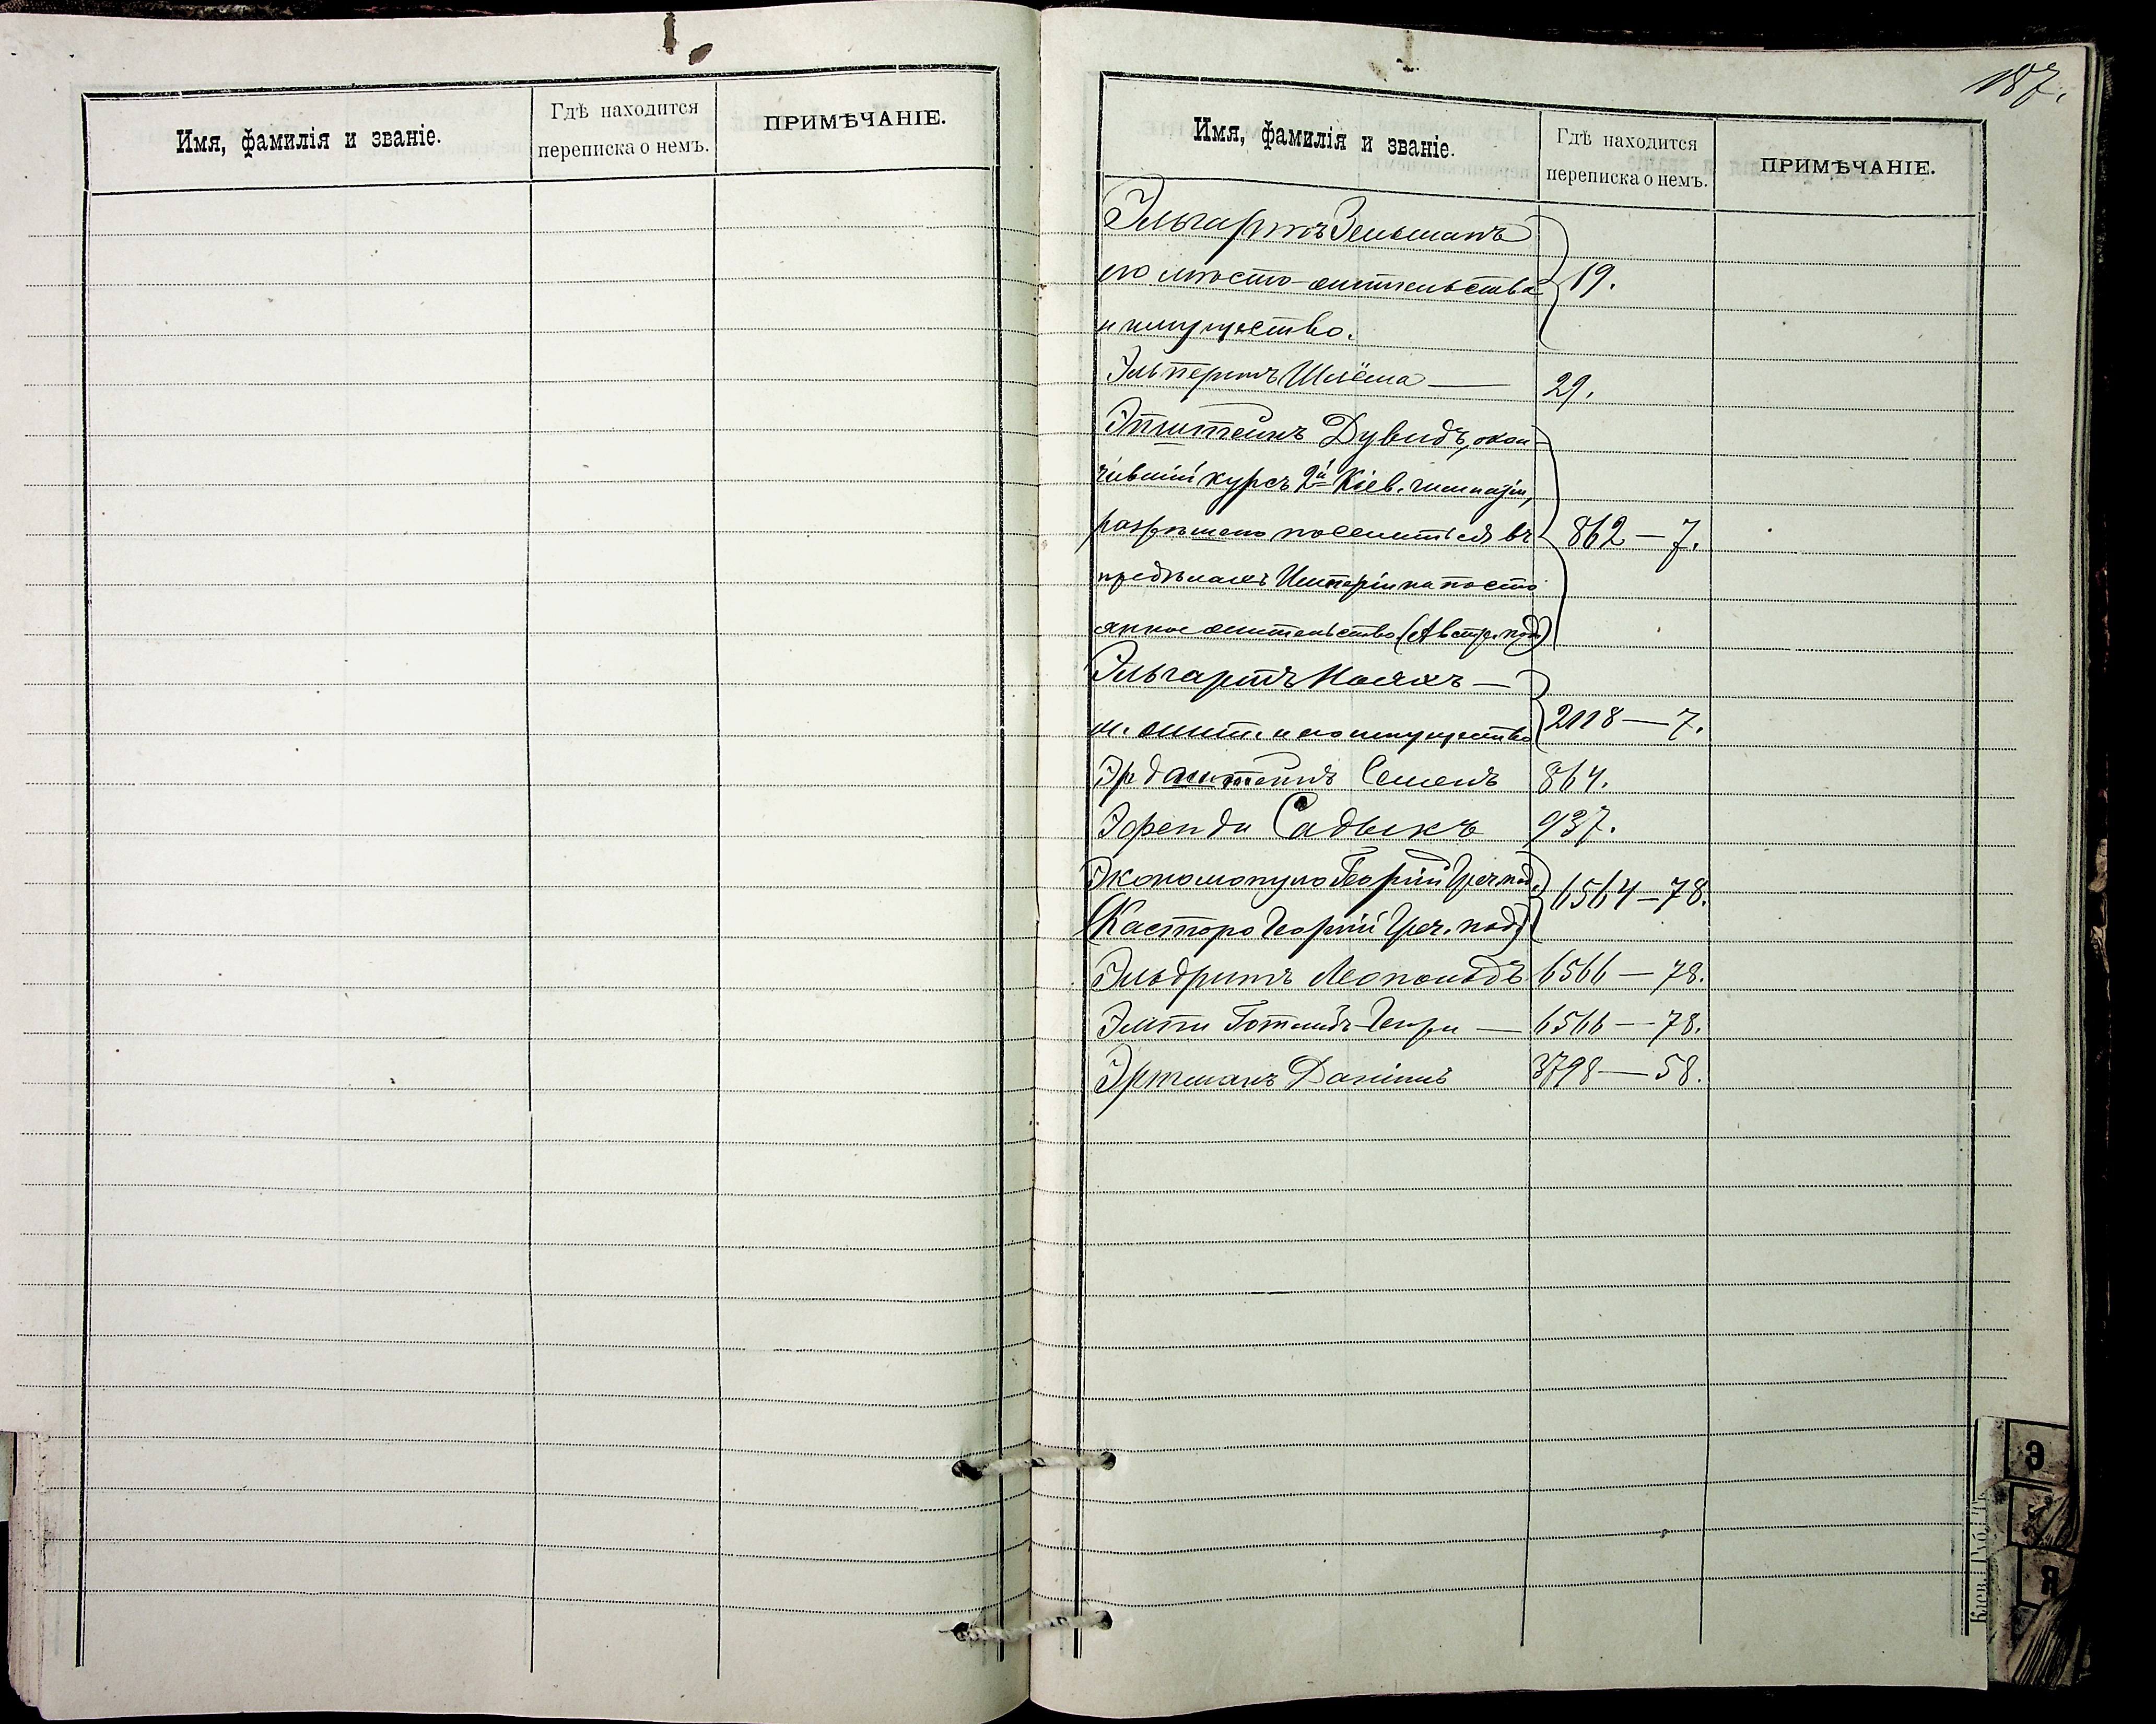 Имя, фамилія и званіе.
Гдѣ находится
переписка о немъ.
ПРИМѢЧАНІЕ.
187.
Имя, фамилія и званіе.
Гдѣ находится
переписка о немъ.
ПРИМѢЧАНІЕ.
Эльгартъ Зельманъ
его мѣсто-жительства 19.
и имущество.
Эльперинъ Шлёма — 29.
Эпштейнъ Дувидъ, окон-
чившій курсъ 2й Кіев. гимназіи,
разрѣшено поселиться въ 862 — 7.
предѣлахъ Имперіи на посто
янное жительство (Австр. под.)
Эльгартъ —
м. жит. и его имущество 2118 — 7.
Семенъ 864.
Эфенди Садыкъ 937.
Экономопуло Георгій Греч. под. 6564 — 78.
(Касторо Георгій Греч. под.)
Эльдритъ Леопольдъ 6566 — 78.
Готлибъ-Генри — 6566 — 78.
Эртманъ Даніилъ 3798 — 58.
Э
Я
Кіев. Губ. Т